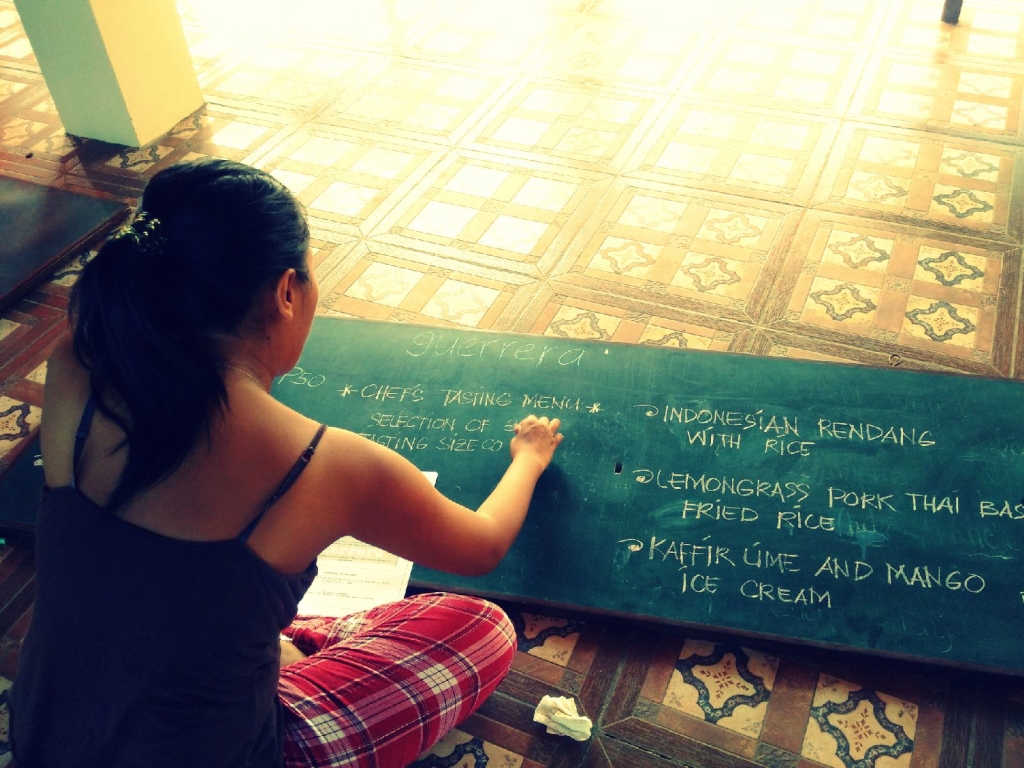 guerrera
P50
* CHEF'S TASTING MENU *
SELECTION OF
TASTING SIZE CO
INDONESIAN RENDANG
WITH RICE
LEMONGRASS PORK THAI BAS
FRIED RICE
KAFFIR LIME AND MANGO
ICE CREAM